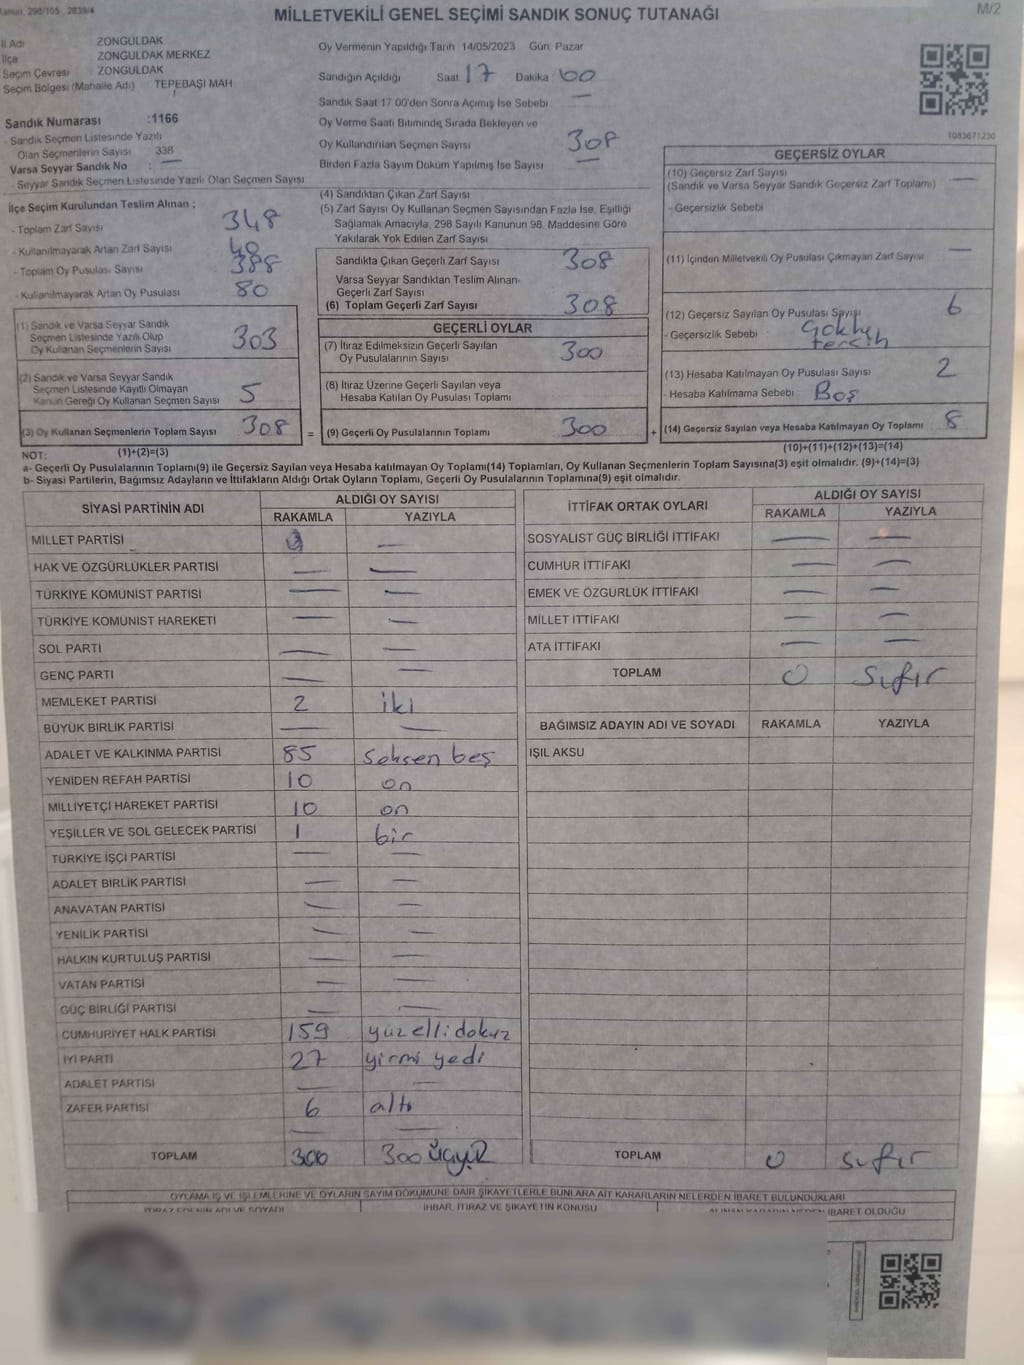 Kanun, 298/105 , 2839/4
MİLLETVEKİLİ GENEL SEÇİMİ SANDIK SONUÇ TUTANAĞI
M/2
İl Adı ZONGULDAK
İlçe ZONGULDAK MERKEZ
Seçim Çevresi ZONGULDAK
Seçim Bölgesi (Mahalle Adı) TEPEBAŞI MAH
Sandık Numarası :1166
- Sandık Seçmen Listesinde Yazılı
Olan Seçmenlerin Sayısı 338
Varsa Seyyar Sandık No : —
- Seyyar Sandık Seçmen Listesinde Yazılı Olan Seçmen Sayısı
İlçe Seçim Kurulundan Teslim Alınan ;
- Toplam Zarf Sayısı 348
- Kullanılmayarak Artan Zarf Sayısı 40
- Toplam Oy Pusulası Sayısı 388
- Kullanılmayarak Artan Oy Pusulası 80
(1) Sandık ve Varsa Seyyar Sandık
Seçmen Listesinde Yazılı Olup
Oy Kullanan Seçmenlerin Sayısı 303
(2) Sandık ve Varsa Seyyar Sandık
Seçmen Listesinde Kayıtlı Olmayan
Kanun Gereği Oy Kullanan Seçmen Sayısı 5
(3) Oy Kullanan Seçmenlerin Toplam Sayısı 308
Oy Vermenin Yapıldığı Tarih 14/05/2023 Gün Pazar
Sandığın Açıldığı Saat 17 Dakika 00
Sandık Saat 17.00'den Sonra Açımış İse Sebebi —
Oy Verme Saati Bitiminde Sırada Bekleyen ve
Oy Kullandırılan Seçmen Sayısı
Birden Fazla Sayım Döküm Yapılmış İse Sayısı
308
—
(4) Sandıktan Çıkan Zarf Sayısı
(5) Zarf Sayısı Oy Kullanan Seçmen Sayısından Fazla İse, Eşitliği
Sağlamak Amacıyla, 298 Sayılı Kanunun 98. Maddesine Göre
Yakılarak Yok Edilen Zarf Sayısı
Sandıkta Çıkan Geçerli Zarf Sayısı 308
Varsa Seyyar Sandıktan Teslim Alınan
Geçerli Zarf Sayısı
(6) Toplam Geçerli Zarf Sayısı 308
GEÇERLİ OYLAR
(7) İtiraz Edilmeksizin Geçerli Sayılan
Oy Pusulalarının Sayısı 300
(8) İtiraz Üzerine Geçerli Sayılan veya
Hesaba Katılan Oy Pusulası Toplamı
= (9) Geçerli Oy Pusulalarının Toplamı 300 +
1083671236
GEÇERSİZ OYLAR
(10) Geçersiz Zarf Sayısı —
(Sandık ve Varsa Seyyar Sandık Geçersiz Zarf Toplamı)
- Geçersizlik Sebebi
(11) İçinden Milletvekili Oy Pusulası Çıkmayan Zarf Sayısı —
(12) Geçersiz Sayılan Oy Pusulası Sayısı 6
- Geçersizlik Sebebi : tercih
(13) Hesaba Katılmayan Oy Pusulası Sayısı 2
- Hesaba Katılmama Sebebi : Boş
(14) Geçersiz Sayılan veya Hesaba Katılmayan Oy Toplamı 8
NOT: (1)+(2)=(3) (10)+(11)+(12)+(13)=(14)
a- Geçerli Oy Pusulalarının Toplamı(9) ile Geçersiz Sayılan veya Hesaba katılmayan Oy Toplamı(14) Toplamları, Oy Kullanan Seçmenlerin Toplam Sayısına(3) eşit olmalıdır. (9)+(14)=(3)
b- Siyasi Partilerin, Bağımsız Adayların ve İttifakların Aldığı Ortak Oyların Toplamı, Geçerli Oy Pusulalarının Toplamına(9) eşit olmalıdır.
SİYASİ PARTİNİN ADI ALDIĞI OY SAYISI
RAKAMLA YAZIYLA
MİLLET PARTİSİ —
HAK VE ÖZGÜRLÜKLER PARTİSİ — —
TÜRKİYE KOMÜNİST PARTİSİ — —
TÜRKİYE KOMÜNİST HAREKETİ — —
SOL PARTİ — —
GENÇ PARTİ — —
MEMLEKET PARTİSİ 2 iki
BÜYÜK BİRLİK PARTİSİ — —
ADALET VE KALKINMA PARTİSİ 85 seksen beş
YENİDEN REFAH PARTİSİ 10 on
MİLLİYETÇİ HAREKET PARTİSİ 10 on
YEŞİLLER VE SOL GELECEK PARTİSİ 1 bir
TÜRKİYE İŞÇİ PARTİSİ — —
ADALET BİRLİK PARTİSİ — —
ANAVATAN PARTİSİ — —
YENİLİK PARTİSİ — —
HALKIN KURTULUŞ PARTİSİ — —
VATAN PARTİSİ — —
GÜÇ BİRLİĞİ PARTİSİ — —
CUMHURİYET HALK PARTİSİ 159 yüzellidokuz
İYİ PARTİ 27 yirmi yedi
ADALET PARTİSİ — —
ZAFER PARTİSİ 6 altı
— —
TOPLAM 300 300 üçyüz
İTTİFAK ORTAK OYLARI ALDIĞI OY SAYISI
RAKAMLA YAZIYLA
SOSYALİST GÜÇ BİRLİĞİ İTTİFAKI — —
CUMHUR İTTİFAKI — —
EMEK VE ÖZGÜRLÜK İTTİFAKI — —
MİLLET İTTİFAKI — —
ATA İTTİFAKI — —
TOPLAM 0 sıfır
BAĞIMSIZ ADAYIN ADI VE SOYADI RAKAMLA YAZIYLA
IŞIL AKSU
TOPLAM 0 sıfır
OYLAMA İŞ VE İŞLEMLERİNE VE OYLARIN SAYIM DÖKÜMÜNE DAİR ŞİKAYETLERLE BUNLARA AİT KARARLARIN NELERDEN İBARET BULUNDUKLARI
İTİRAZ EDENİN ADI VE SOYADI İHBAR, İTİRAZ VE ŞİKAYETİN KONUSU İBARET OLDUĞU